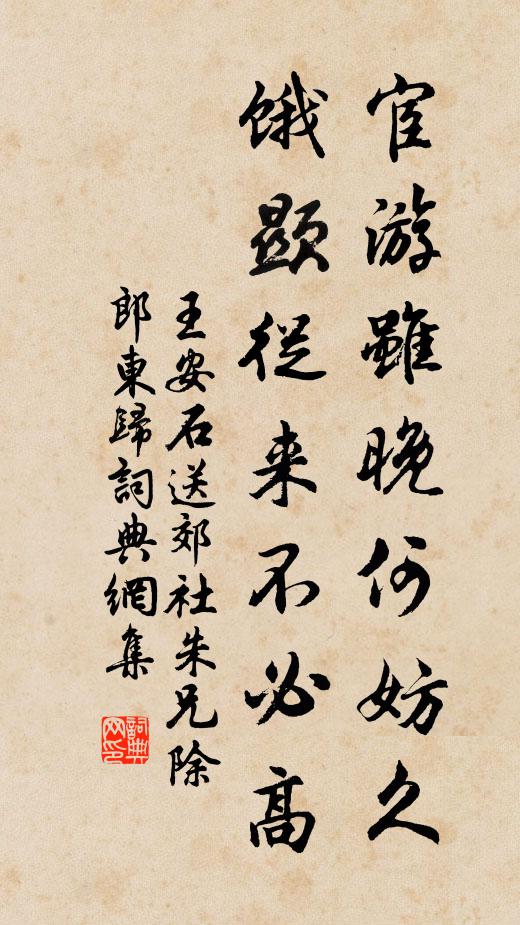 宦游雖晚何妨久
餓顯從来不必高
王安石送郊社朱兄除
郎東歸詞典網集
詞典网印